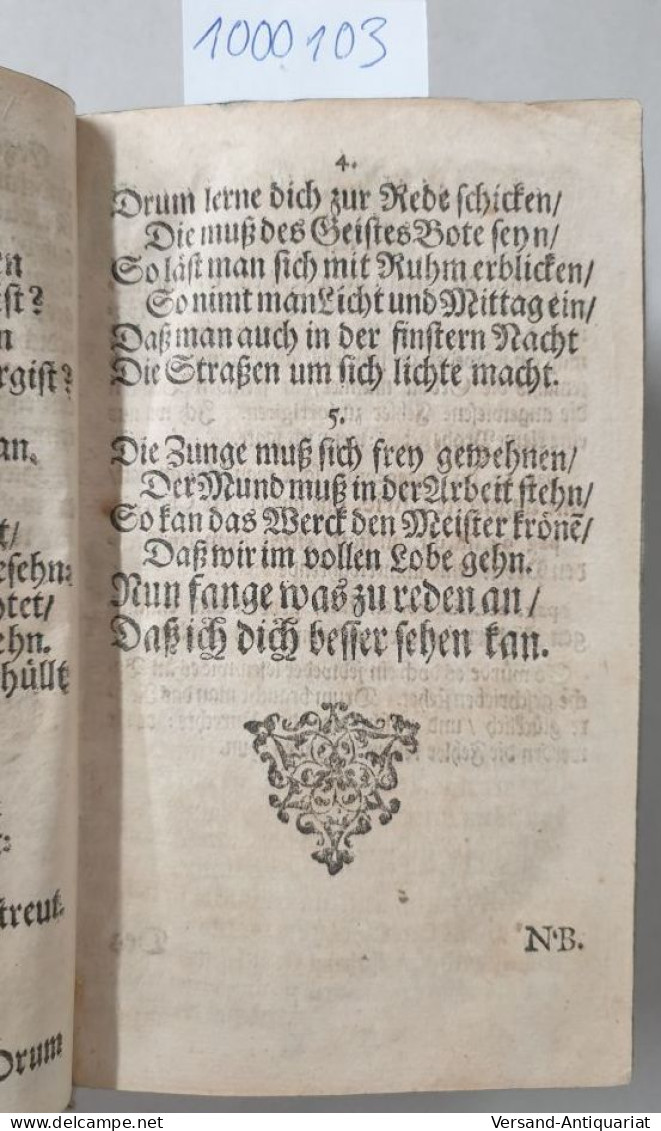 1000103
4.
Drum lerne dich zur Rede schicken/
Die muß des Geistes Bote seyn/
So läst man sich mit Ruhm erblicken/
So nimt man Licht und Mittag ein/
Daß man auch in der finstern Nacht
Die Straßen um sich lichte macht.
5.
Die Zunge muß sich frey gewehnen/
Der Mund muß in der Arbeit stehn/
So kan das Werck den Meister krönẽ/
Daß wir im vollen Lobe gehn.
Nun fange was zu reden an/
Daß ich dich besser sehen kan.
NB.
Drum
delcampe.net
Versand-Antiquariat